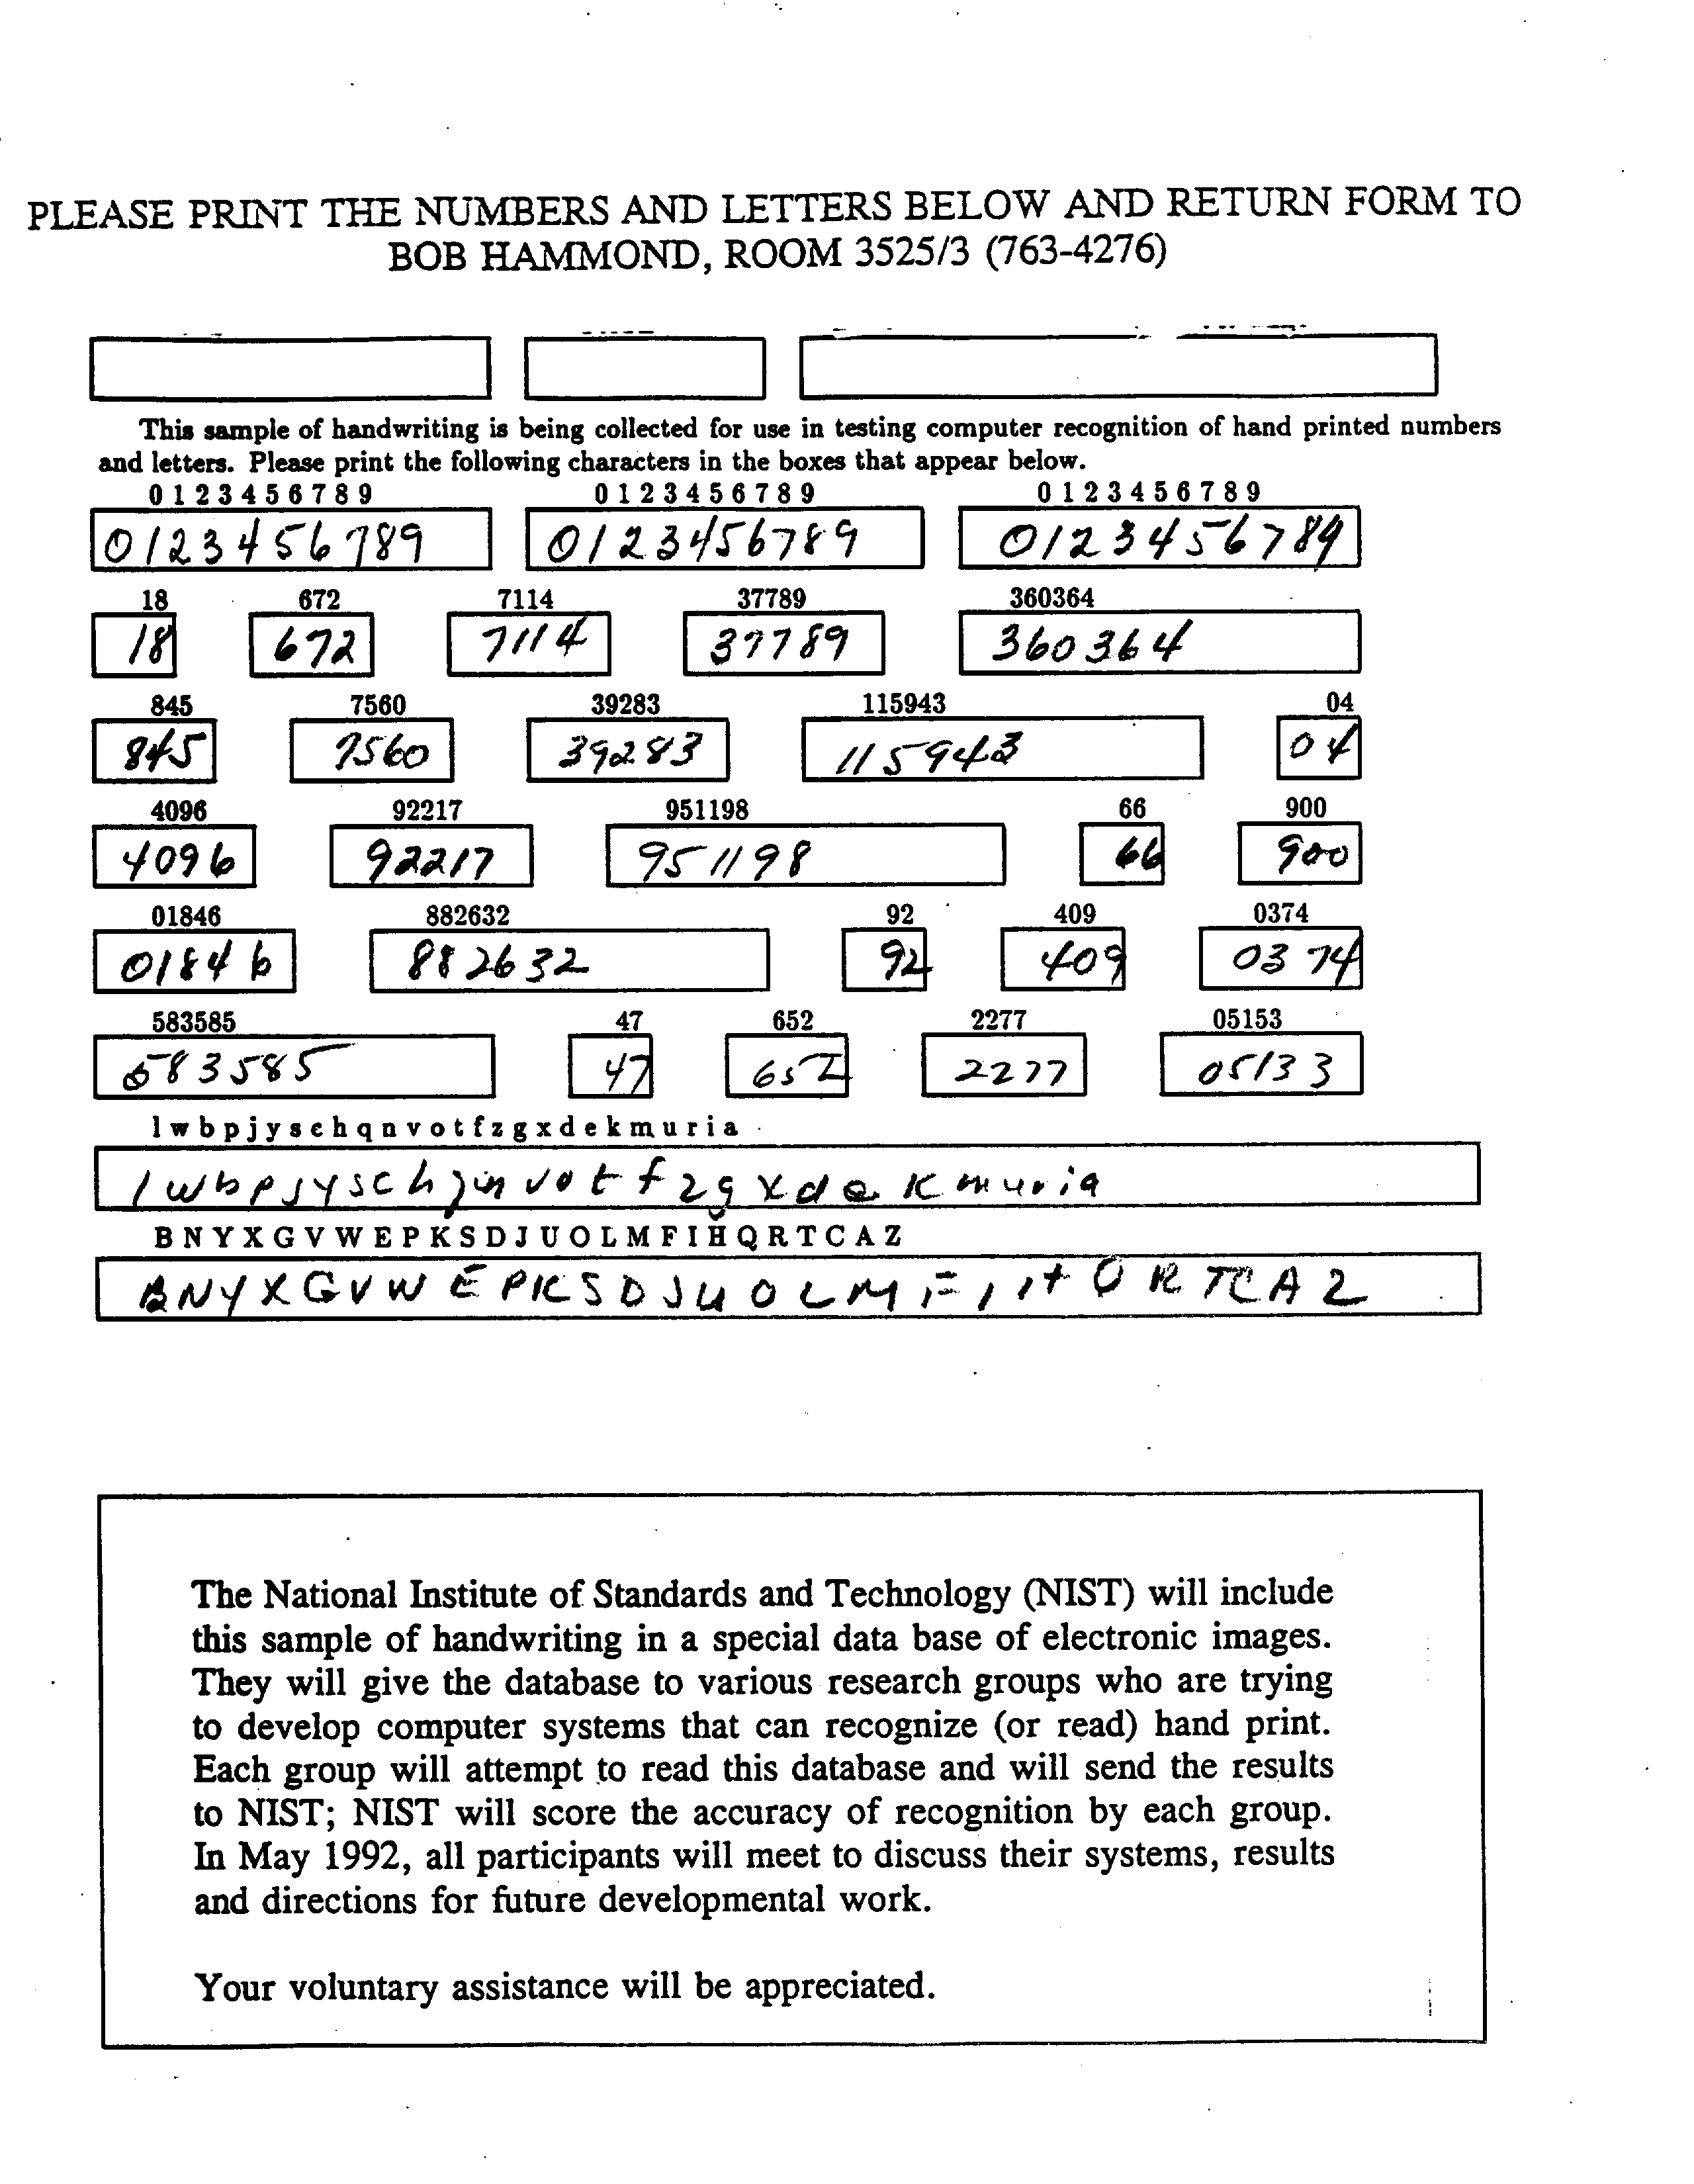 PLEASE PRINT THE NUMBERS AND LETTERS BELOW AND RETURN FORM TO
BOB HAMMOND, ROOM 3525/3 (763-4276)
This sample of handwriting is being collected for use in testing computer recognition of hand printed numbers
and letters. Please print the following characters in the boxes that appear below.
0 1 2 3 4 5 6 7 8 9 0 1 2 3 4 5 6 7 8 9 0 1 2 3 4 5 6 7 8 9
0123456789 0123456789 0123456789
18 672 7114 37789 360364
18 672 7114 37789 360364
845 7560 39283 115943 04
845 7560 39283 115943 04
4096 92217 951198 66 900
4096 92217 951198 66 900
01846 882632 92 409 0374
01846 882632 92 409 0374
583585 47 652 2277 05153
583585 47 652 2277 05133
l w b p j y s c h q n v o t f z g x d e k m u r i a
l w b p j y s c h q n v o t f z g x d e k m u r i a
B N Y X G V W E P K S D J U O L M F I H Q R T C A Z
B N Y X G V W E P K S D J U O L M F I H Q R T C A Z
The National Institute of Standards and Technology (NIST) will include
this sample of handwriting in a special data base of electronic images.
They will give the database to various research groups who are trying
to develop computer systems that can recognize (or read) hand print.
Each group will attempt to read this database and will send the results
to NIST; NIST will score the accuracy of recognition by each group.
In May 1992, all participants will meet to discuss their systems, results
and directions for future developmental work.
Your voluntary assistance will be appreciated.